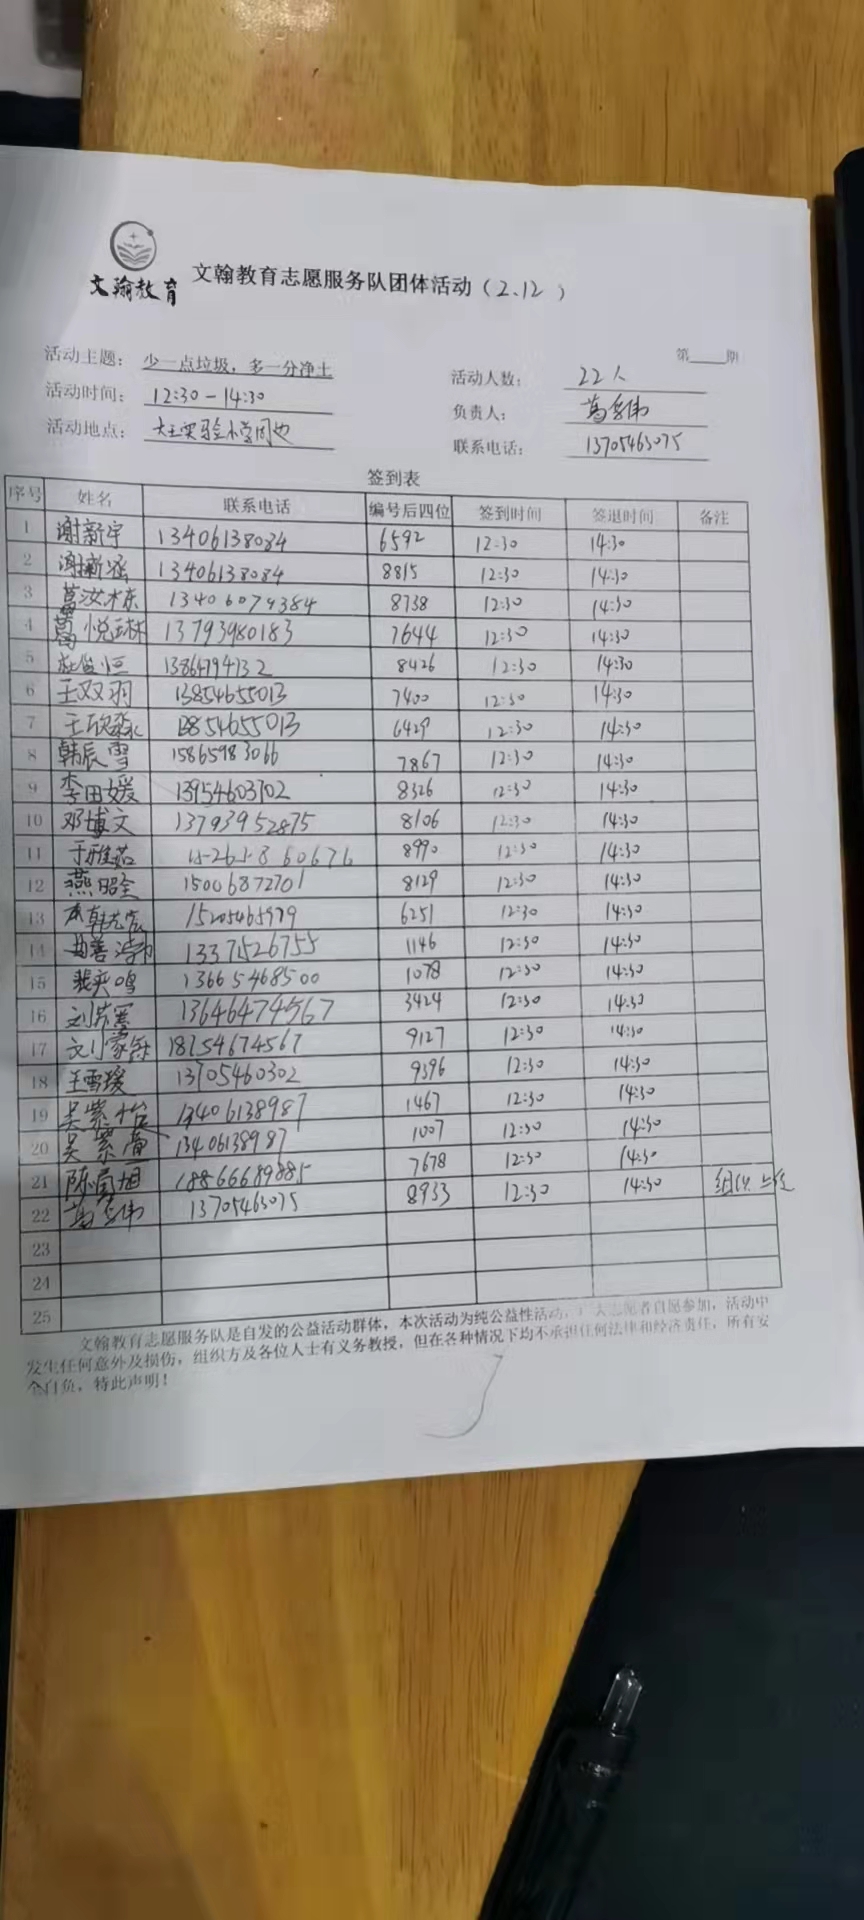 文翰教育
文翰教育志愿服务队团体活动（2.12）
第 期
活动主题： 少一点垃圾，多一分净土
活动人数： 22人
活动时间： 12:30-14:30
负责人： 葛 伟
活动地点： 大王实验小学周边
联系电话： 13705463075
签到表
序号 姓名 联系电话 编号后四位 签到时间 签退时间 备注
1 谢新宇 13406138084 6592 12:30 14:30
2 谢新涵 13406138084 8815 12:30 14:30
3 葛汝 东 13406079384 8738 12:30 14:30
4 葛悦琳 13793980183 7644 12:30 14:30
5 13864794732 8426 12:30 14:30
6 王双羽 13854655013 7400 12:30 14:30
7 王欣淼 13854655013 6429 12:30 14:30
8 韩辰雪 15865983066 7867 12:30 14:30
9 李田媛 13954603702 8326 12:30 14:30
10 邓博文 13793952875 8106 12:30 14:30
11 于雅茹 15263860676 8990 12:30 14:30
12 燕昭全 15006872701 8129 12:30 14:30
13 15205465979 6251 12:30 14:30
14 曲善 13371526755 1146 12:30 14:30
15 裴奕鸣 13665468500 1078 12:30 14:30
16 刘 13646474567 3424 12:30 14:30
17 刘蒙 18754674567 9127 12:30 14:30
18 王雪瑗 13705460302 9396 12:30 14:30
19 吴紫怡 13406138987 1467 12:30 14:30
20 吴紫萱 13406138987 1007 12:30 14:30
21 陈 旭 18866689885 7678 12:30 14:30
22 葛 伟 13705463075 8933 12:30 14:30 组织
23
24
25
文翰教育志愿服务队是自发的公益活动群体，本次活动为纯公益性活动， 大志愿者自愿参加，活动中
发生任何意外及损伤，组织方及各位人士有义务教授，但在各种情况下均不承担任何法律和经济责任，所有安
全自负，特此声明！